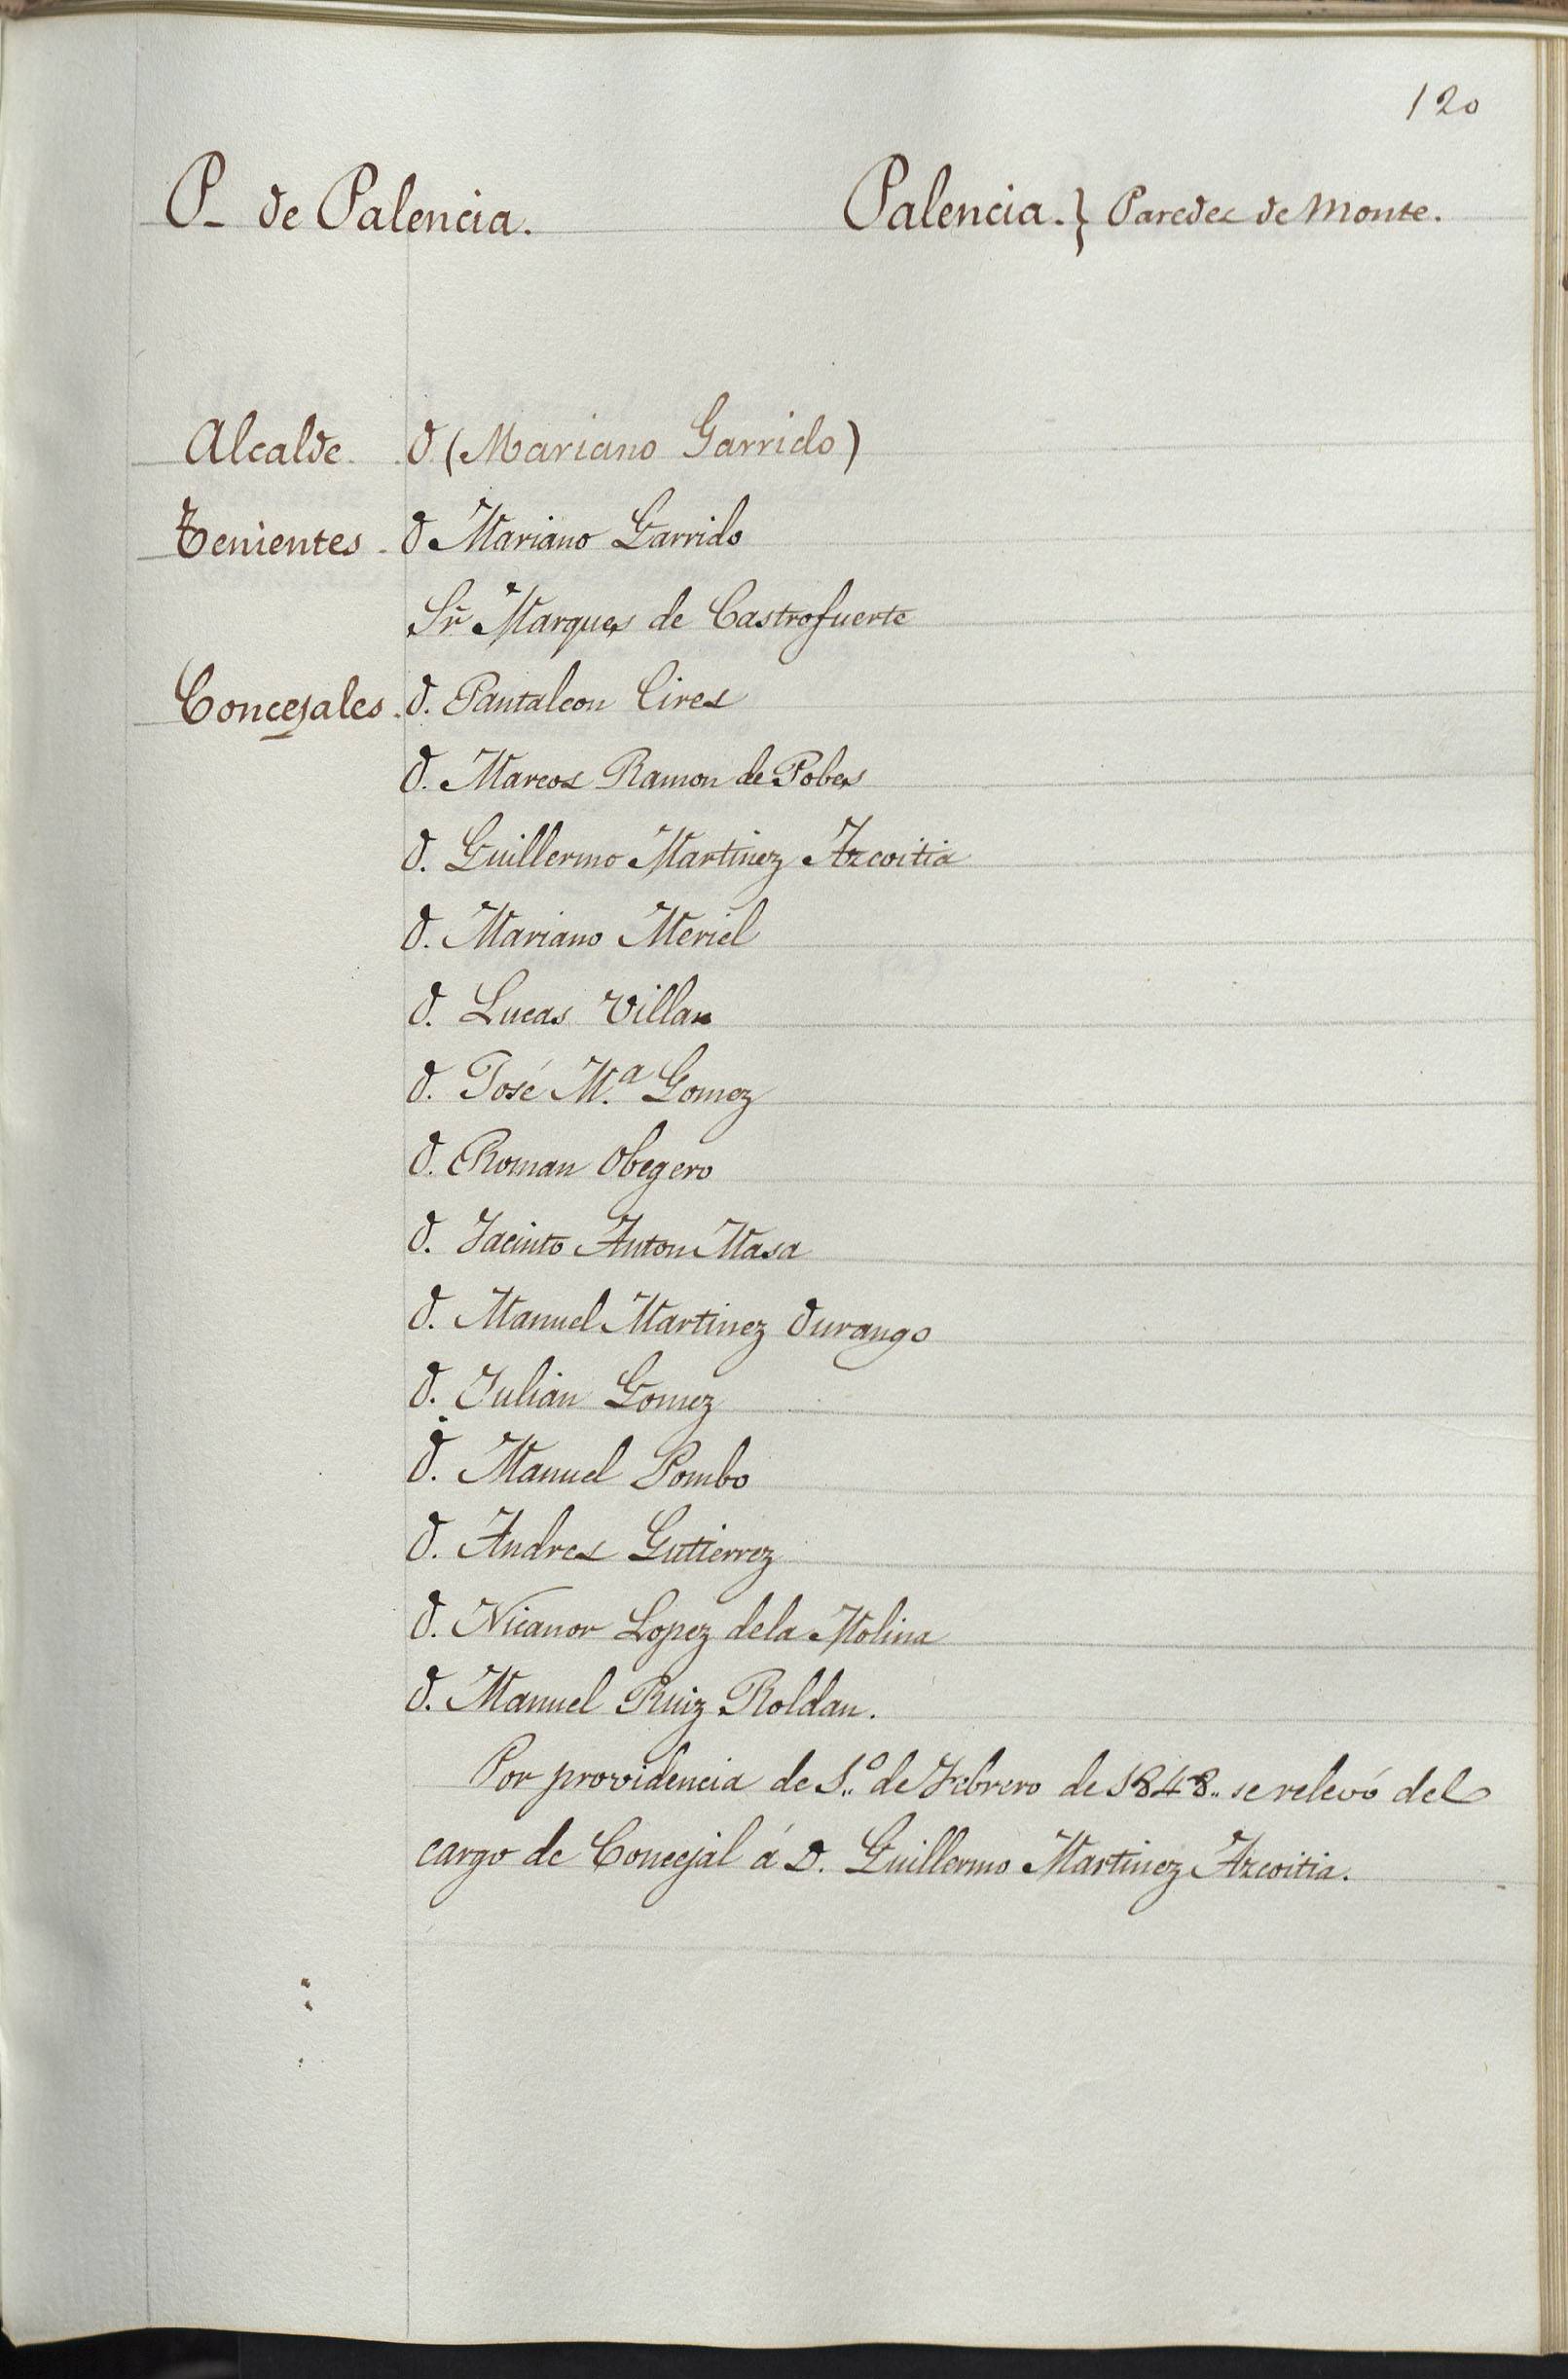 120
P. de Palencia. Palencia. } Paredes de Monte.
Alcalde D. (Mariano Garrido)
Tenientes D Mariano Garrido
Sr. Marques de Castrofuerte
Concejales. D. Pantaleon Cires
D. Marcos Ramon de Pobes
D. Guillermo Martinez Azcoitia
D. Mariano Meriel
D. Lucas Villan
D. José M.ª Gomez
D. Roman Obegero
D. Jacinto Anton Masa
D. Manuel Martinez Durango
D. Julian Gomez
D. Manuel Pombo
D. Andres Gutierrez
D. Nicanor Lopez dela Molina
D. Manuel Ruiz Roldan.
Por providencia de 1.º de Febrero de 1848.. se relevó del
cargo de Concejal á D. Guillermo Martinez Azcoitia.